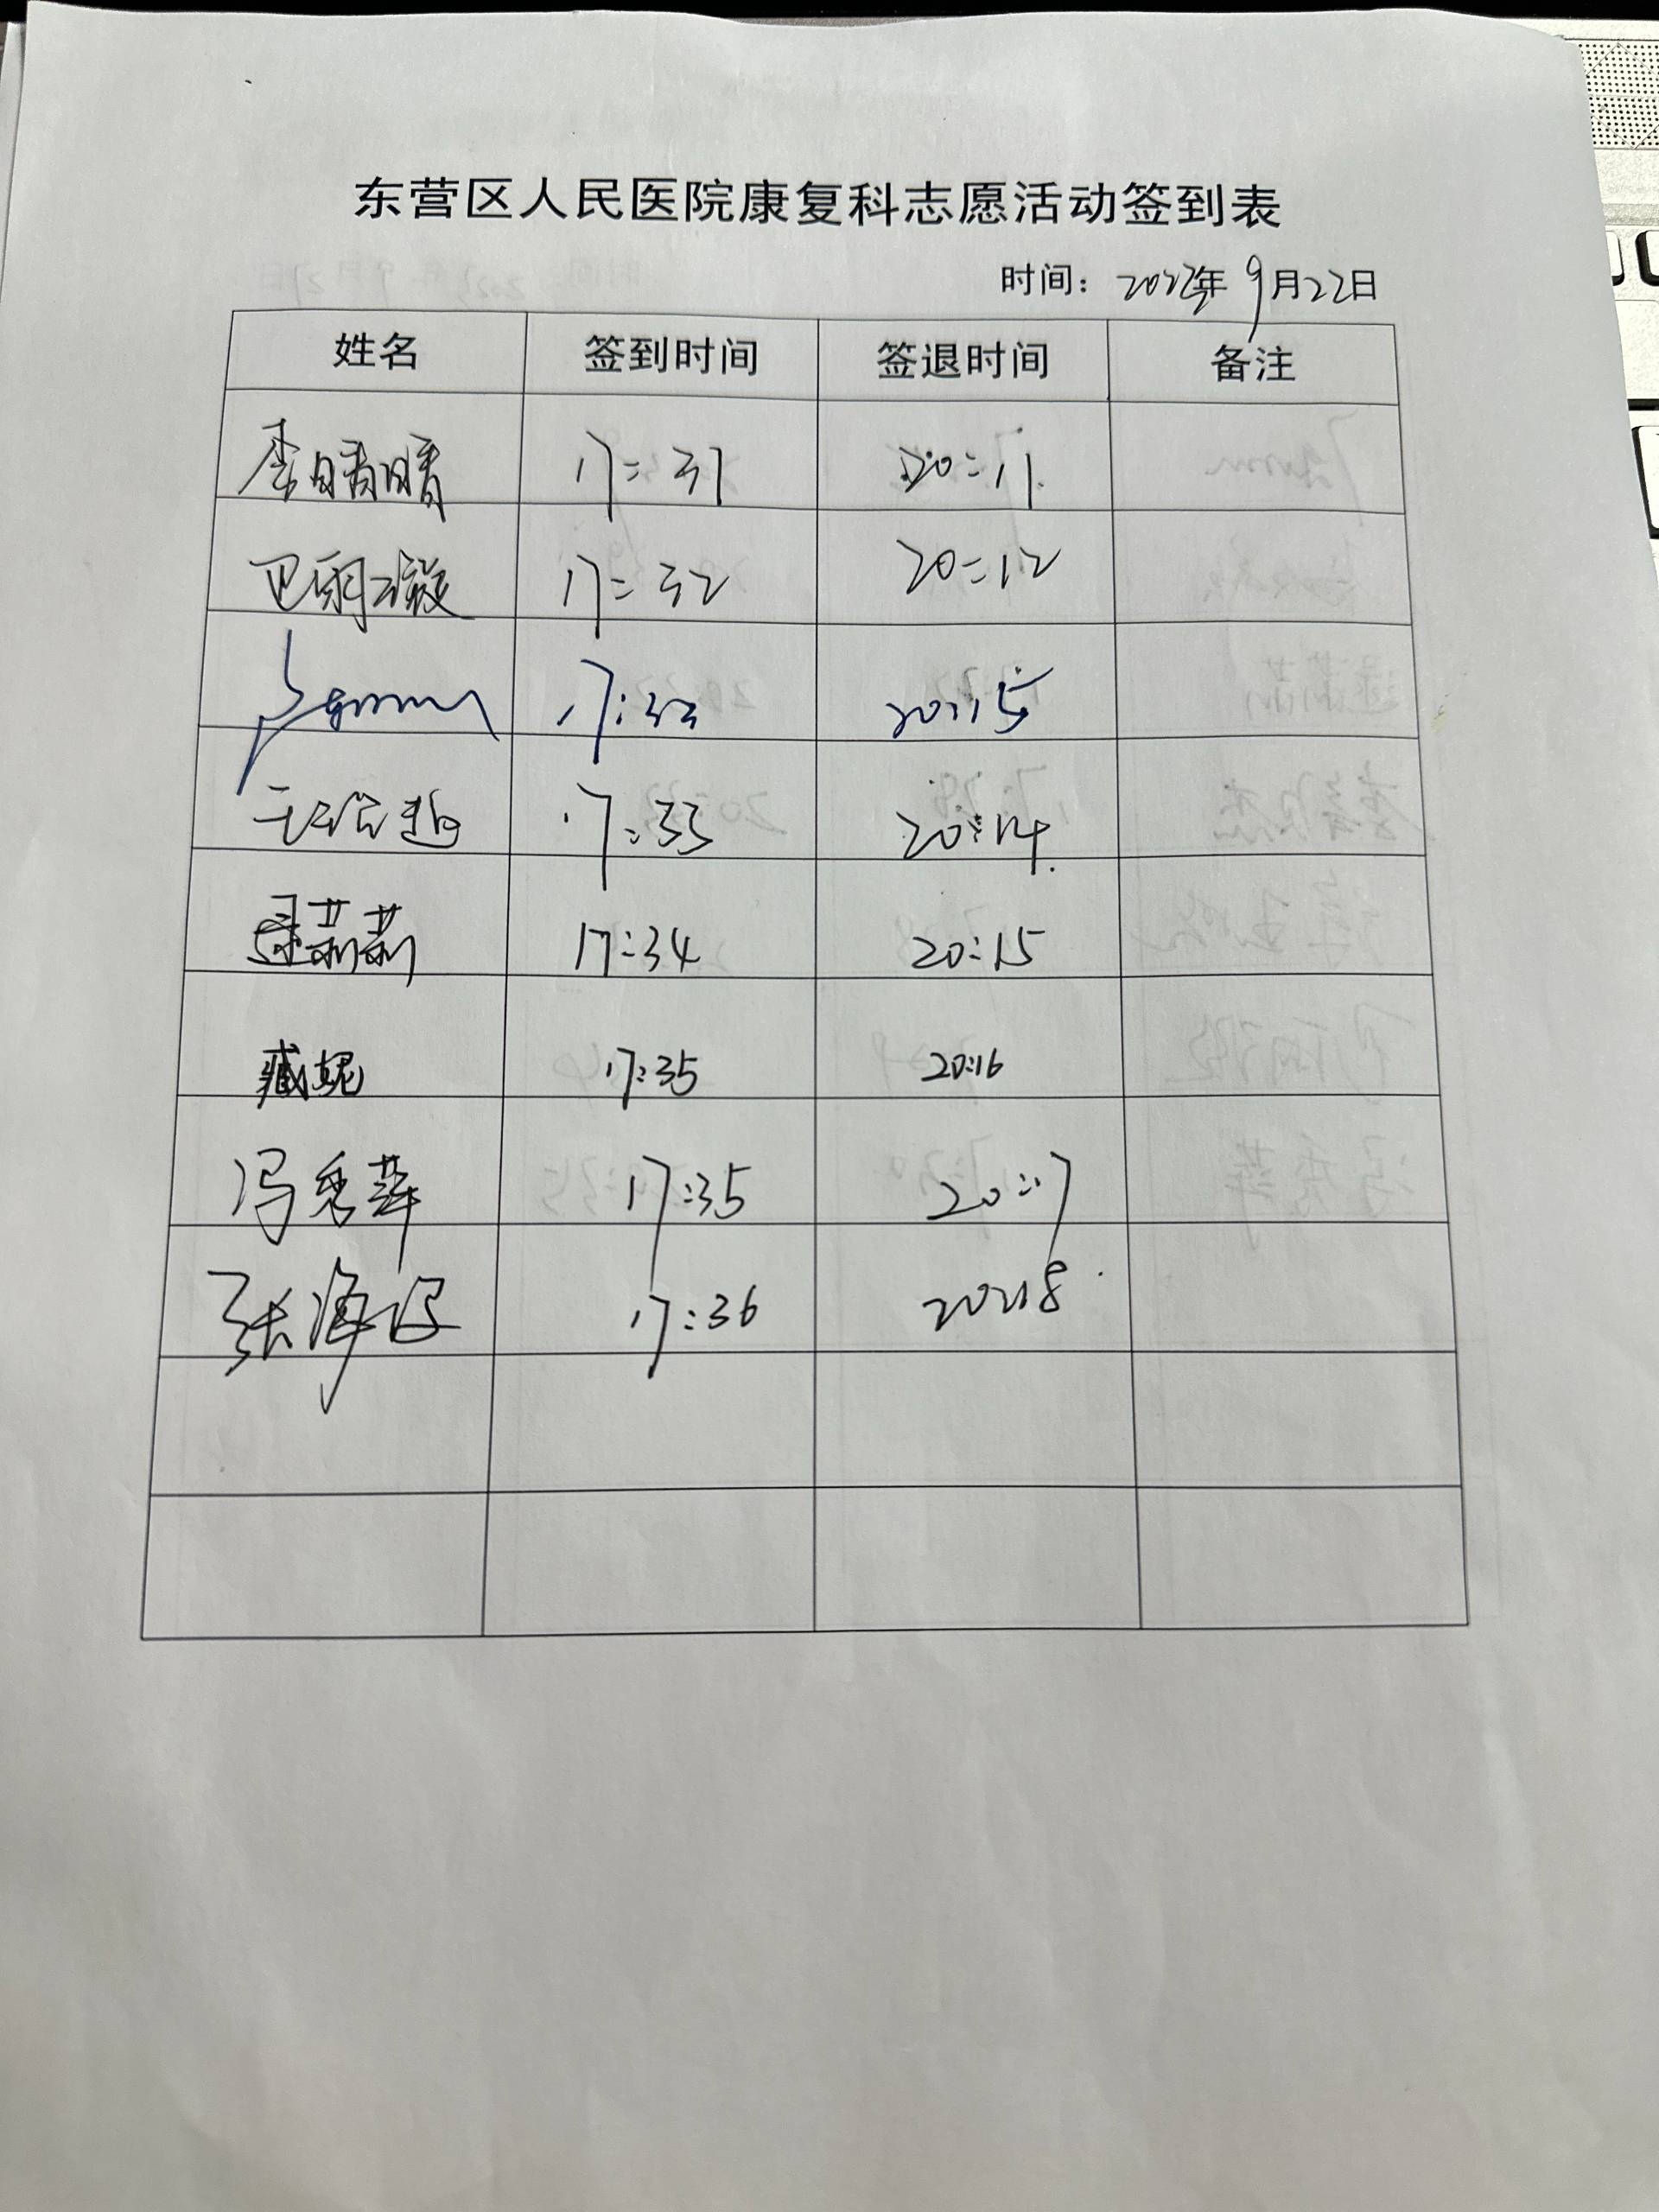 东营区人民医院康复科志愿活动签到表
时间： 年 9月22日
姓名 签到时间 签退时间 备注
李晴晴 17:31 20:11
巴明璇 17:32 20:12
17:33 20:15
17:33 20:14
逯莉莉 17:34 20:15
臧妮 17:35 20:16
冯秀萍 17:35 20:17
张海 17:36 20:18